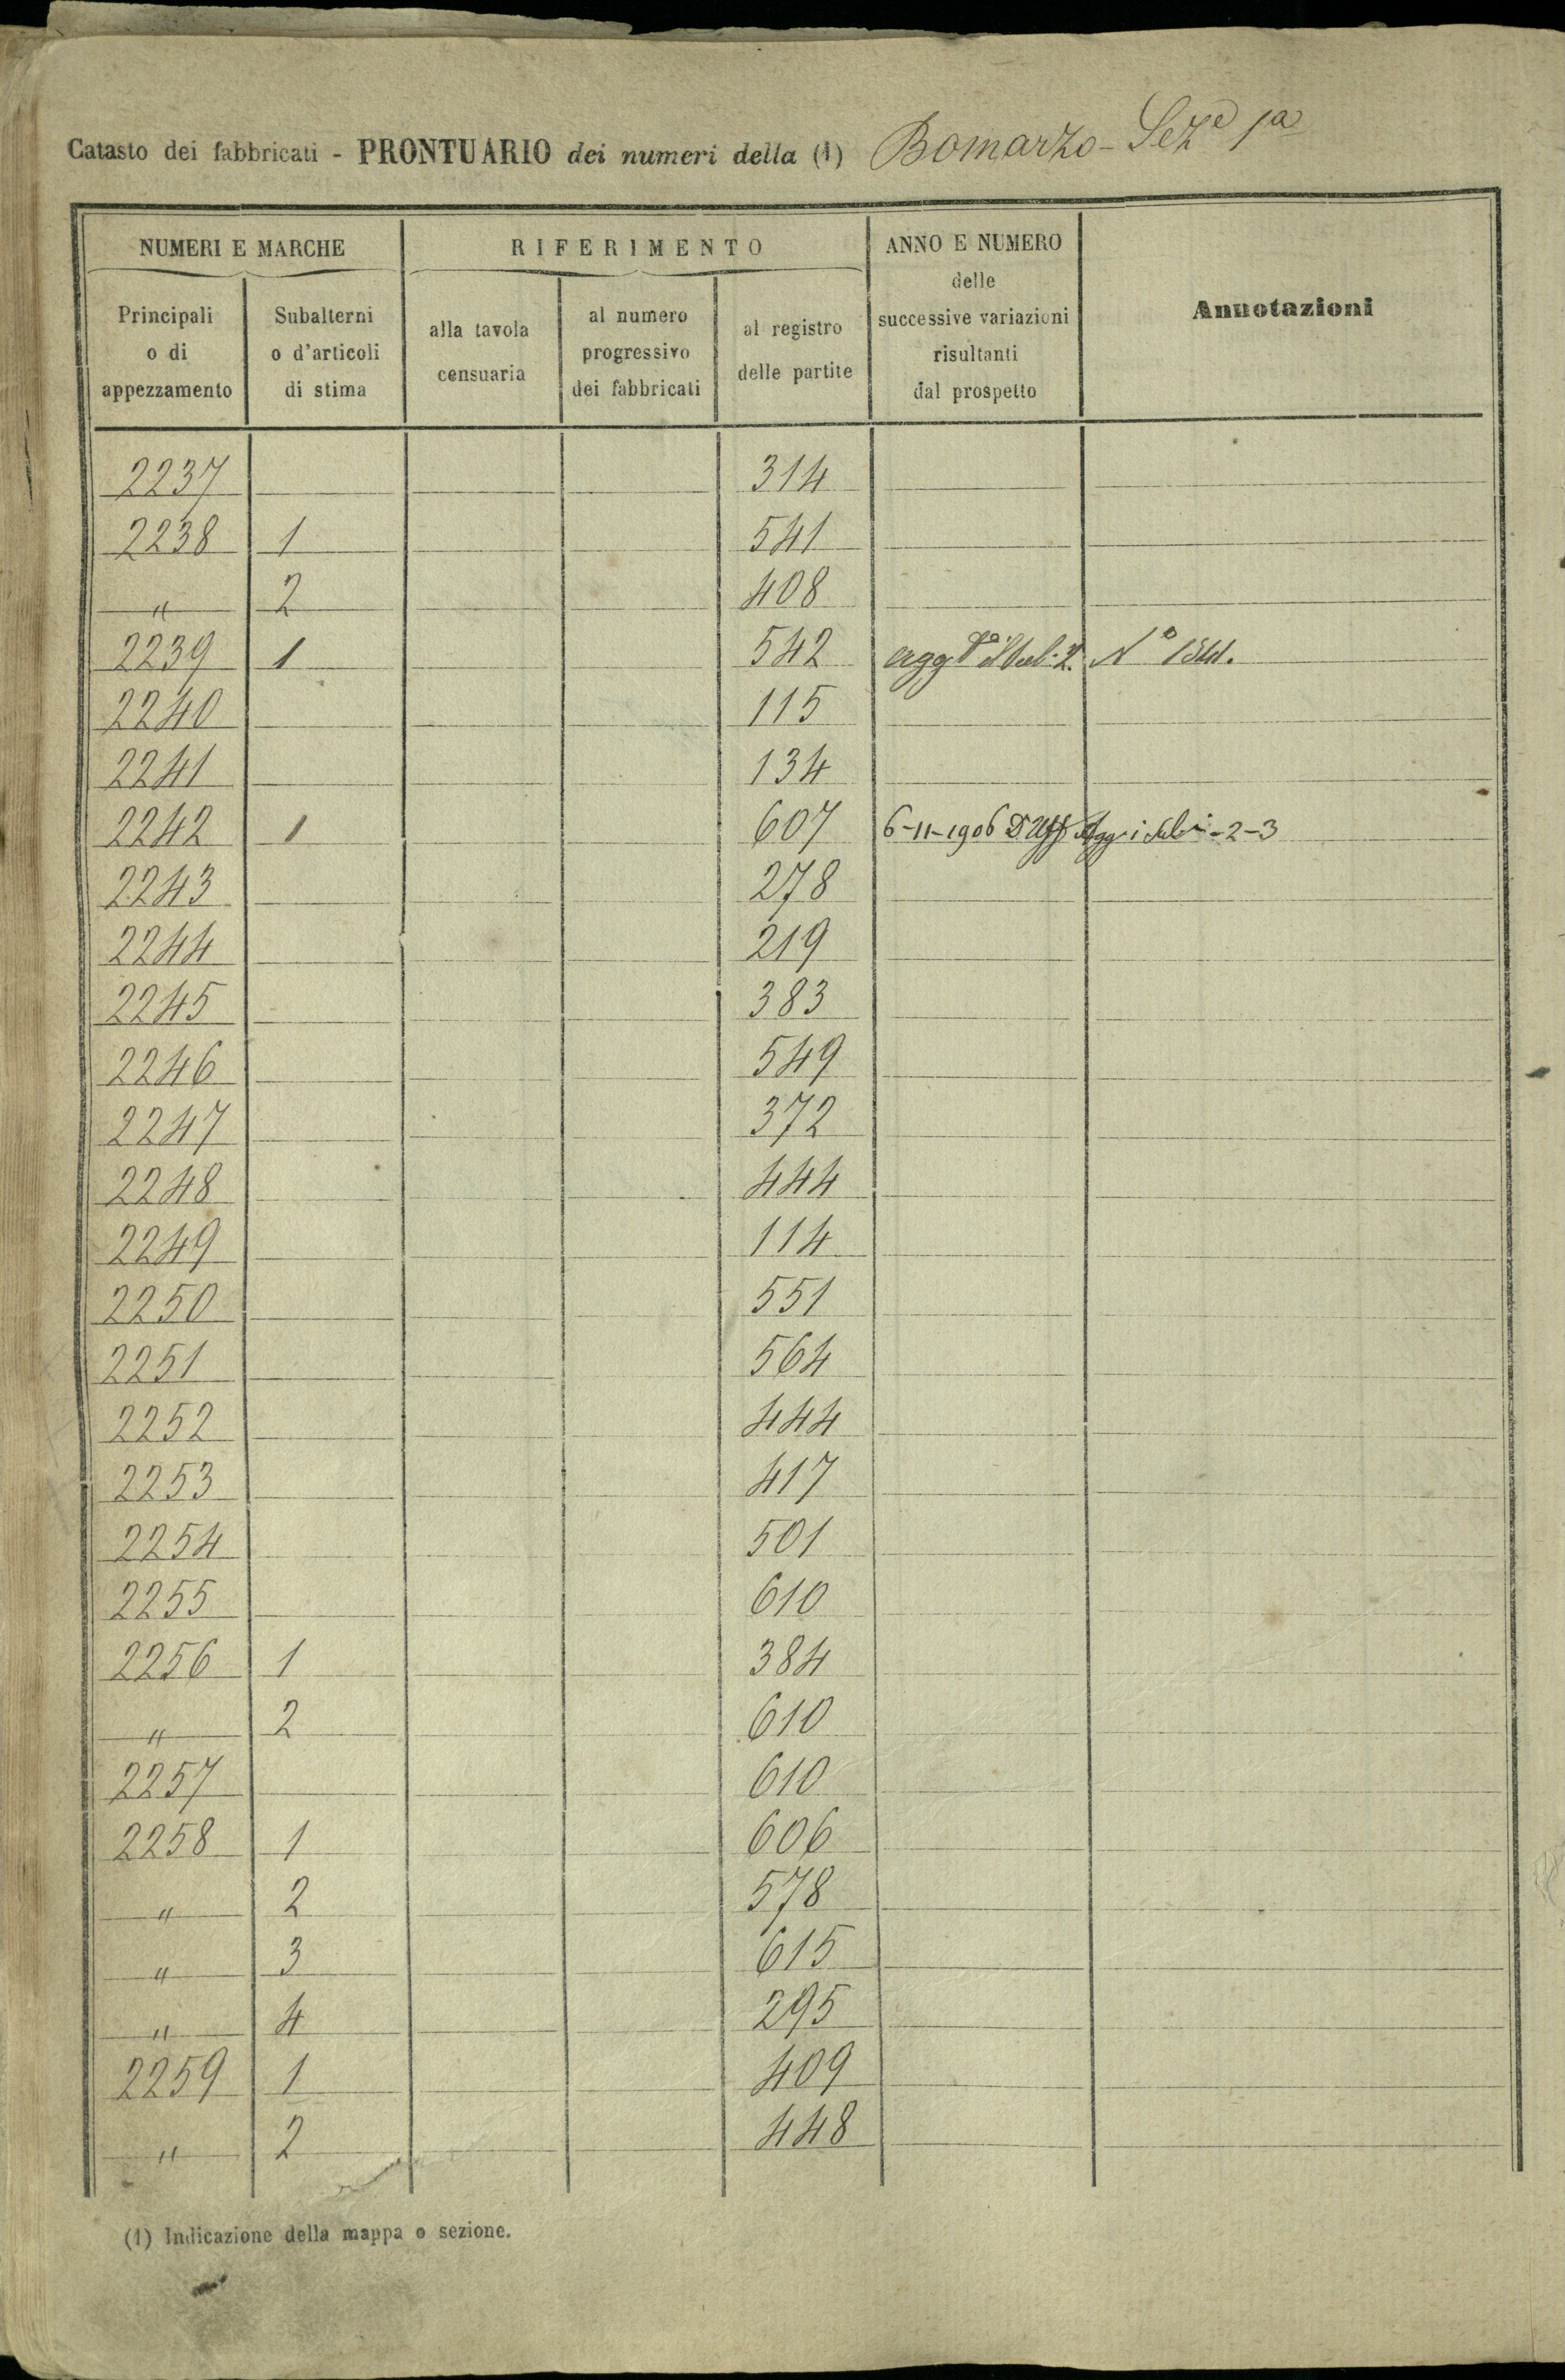 Catasto dei fabbricati - PRONTUARIO dei numeri della (1) Bomarzo - Seze 1a
NUMERI E MARCHE
RIFERIMENTO
ANNO E NUMERO delle successive variazioni risultanti dal prospetto
Annotazioni
Principali o di appezzamento
Subalterni o d'articoli di stima
alla tavola censuaria
al numero progressivo dei fabbricati
al registro delle partite
2237 314
2238 1 541
" 2 408
2239 1 542 N°
2240 115
2241 134
2242 1 607 6-11-1906 - 2 - 3
2243 278
2244 219
2245 383
2246 549
2247 372
2248 444
2249 114
2250 551
2251 564
2252 444
2253 417
2254 501
2255 610
2256 1 384
" 2 610
2257 610
2258 1 606
" 2 578
" 3 615
" 4 295
2259 1 409
" 2 448
(1) Indicazione della mappa o sezione.